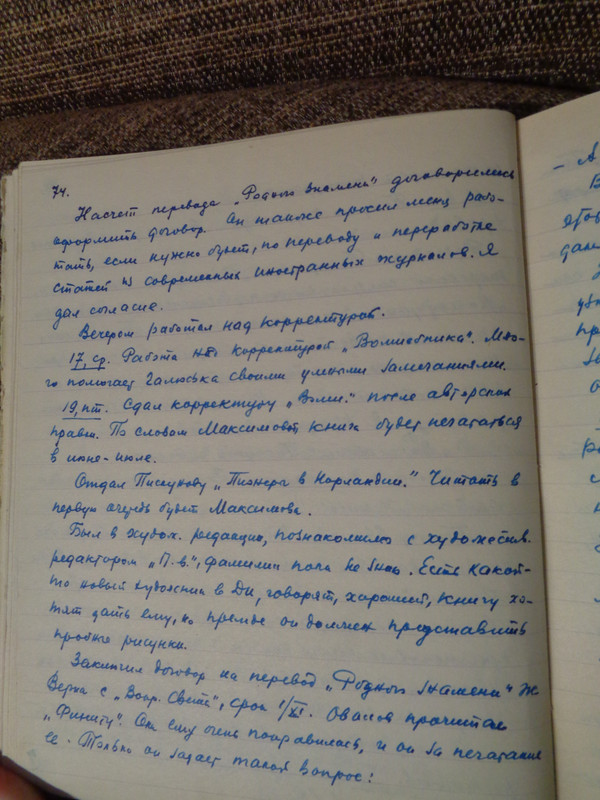 74.
Насчет перевода „Родного знамени" договорились
оформить договор. Он также просил меня рабо-
тать, если нужно будет, по переводу и переработке
статей из современных иностранных журналов. Я
дал согласие.
Вечером работал над корректурой.
17, ср. Работа над корректурой „Волшебника". Мно-
го помогает Галюська своими умными замечаниями.
19, пт. Сдал корректуру „Волш." после авторской
правки. По словам Максимовой книга будет печататься
в июне-июле.
Отдал Пискунову „Пионеры в Норландии." Читать в
первую очередь будет Максимова.
Был в худож. редакции, познакомился с художеств.
редактором „П. в.", фамилии пока не знаю. Есть какой-
то новый художник в Ди, говорят, хороший, книгу хо-
тят дать ему, но прежде он должен представить
пробные рисунки.
Заключил договор на перевод „Родного знамени" Ж
Верна с „Вокр. Света", срок 1/XI. Овалов прочитал
„Финиту". Она ему очень понравилась, и он за печатание
ее. Только он задает такой вопрос:
– А
В
этов
дал
пр
о
с